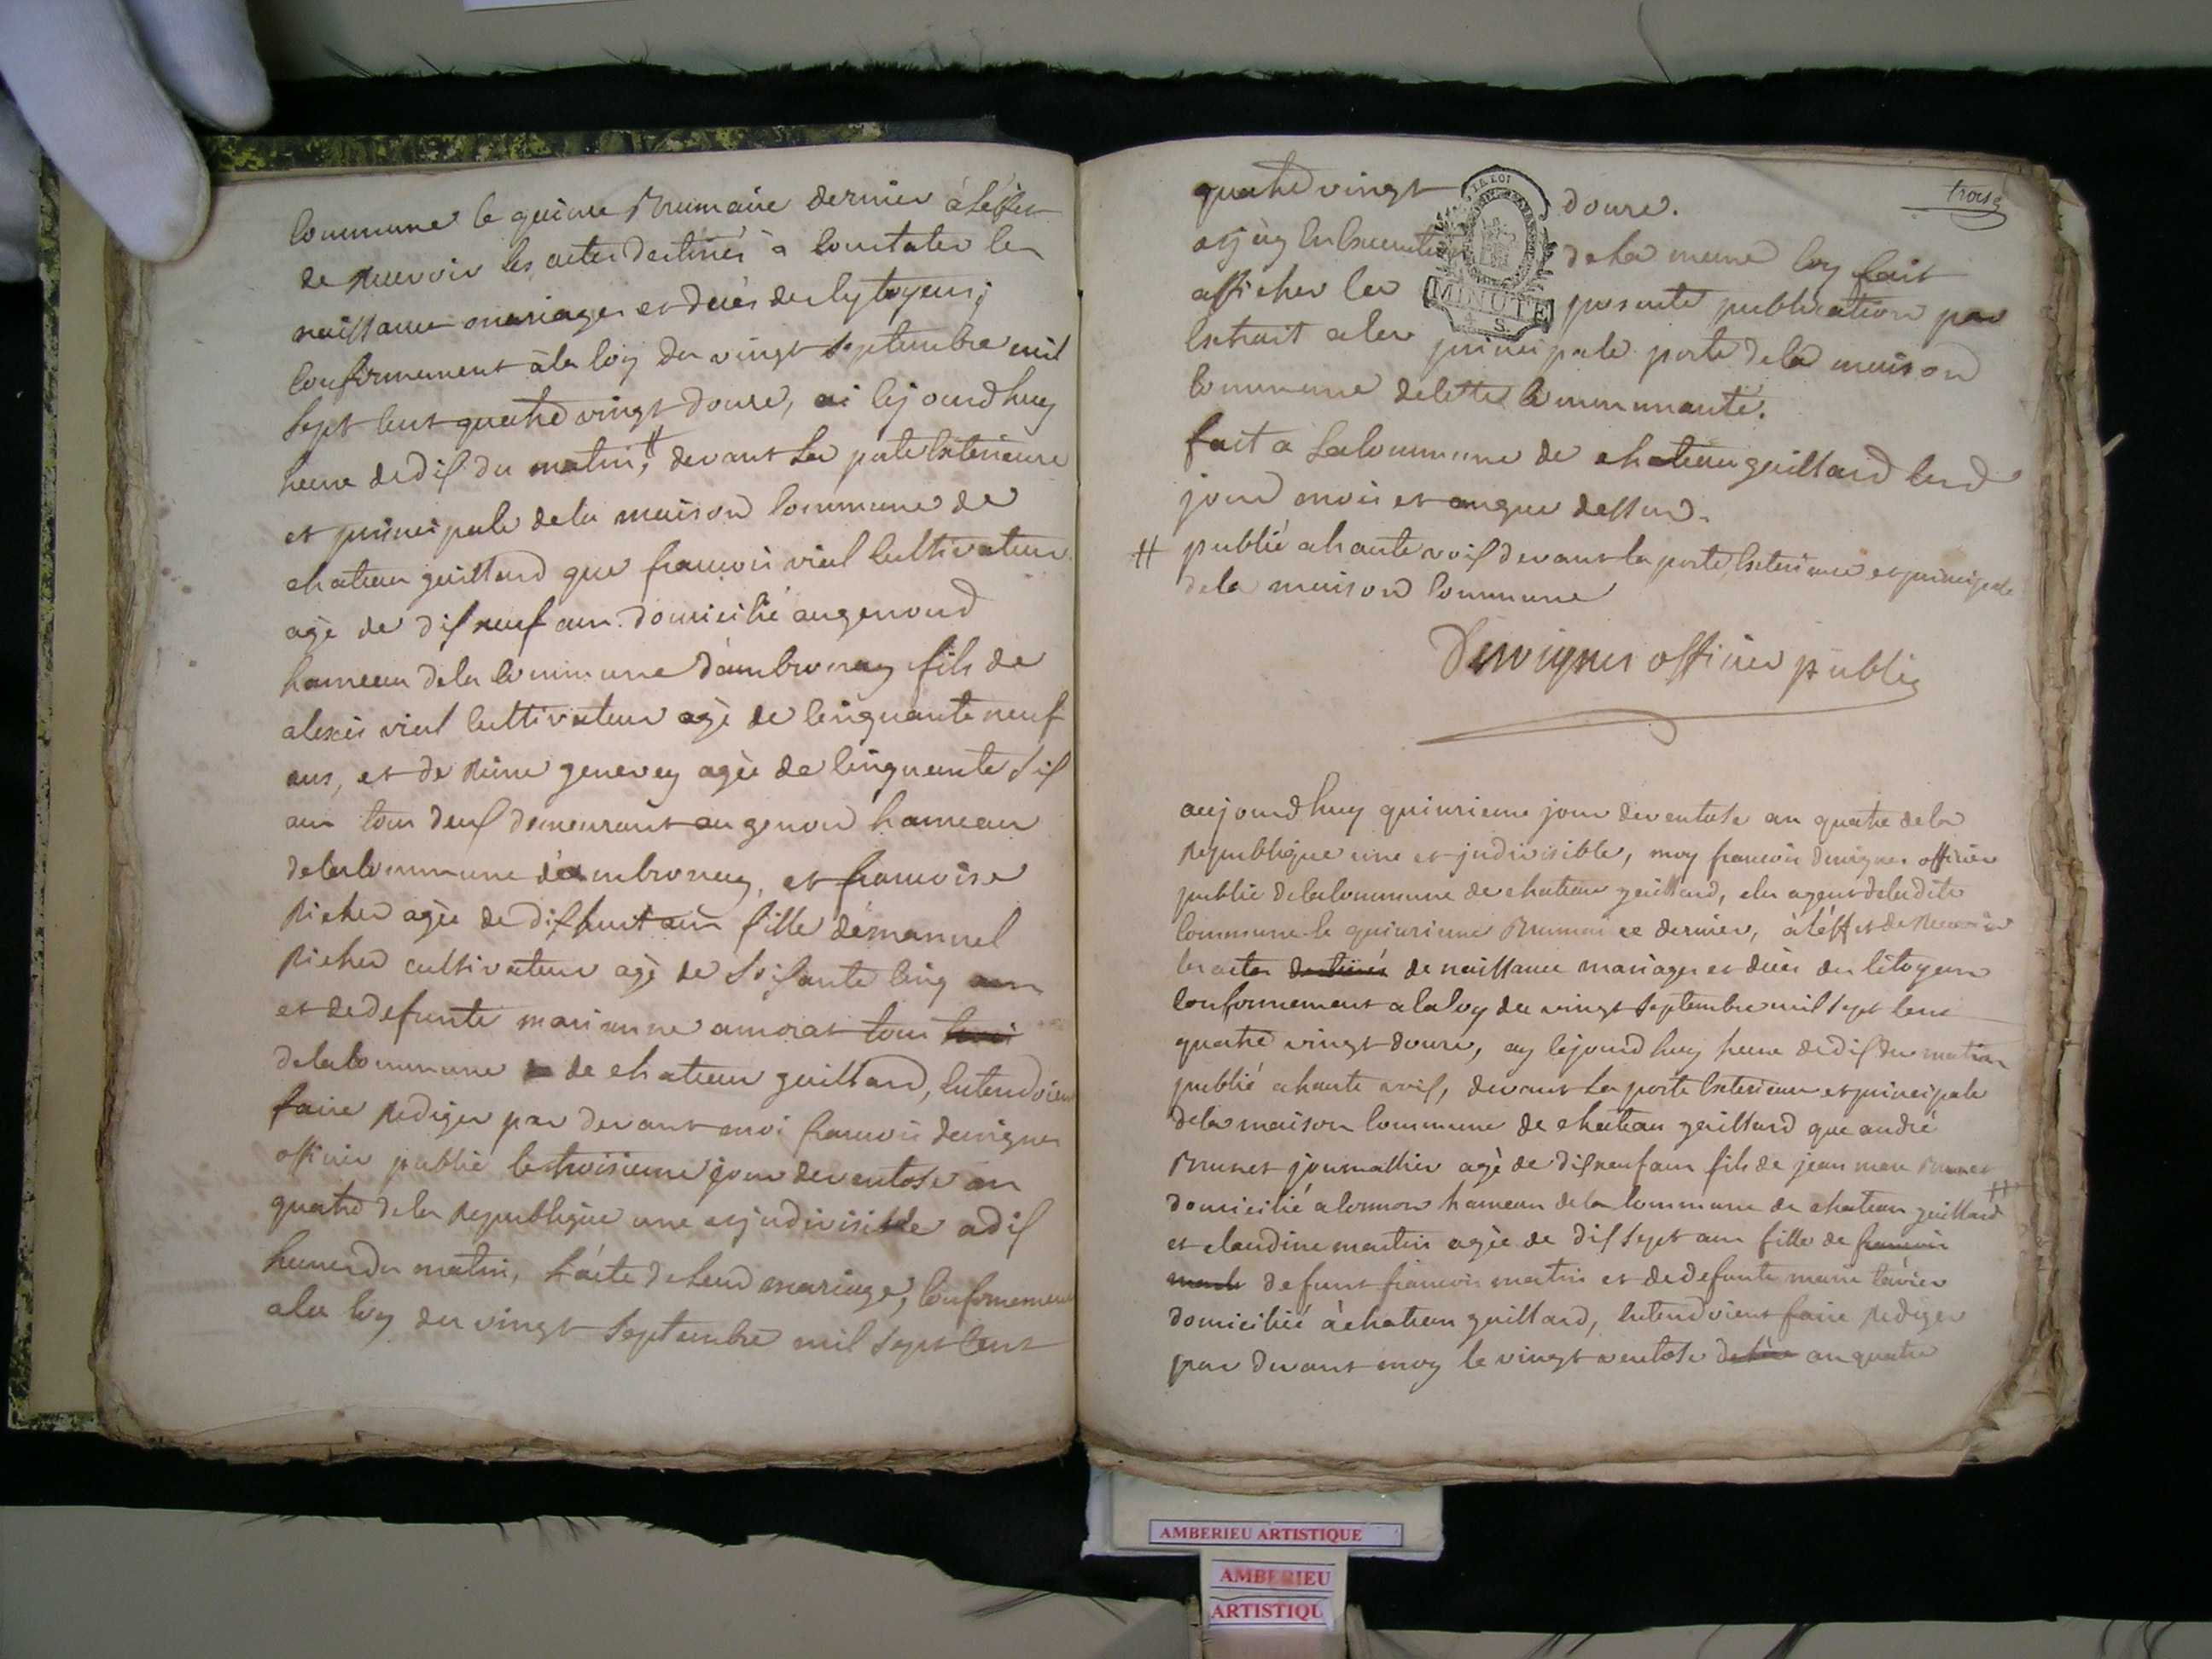 Commune le quinze Brumaire dernier à l'effet
de recevoir les actes destinés à Constater les
naissance mariages et décès des Cytoyens;
Conformement à la loy du vingt septembre mil
sept Cent quatre vingt douze, ai Cejourdhuy
heure de dix du matin, # devant la porte Exterieure
et principale de la maison Commune de
chateau gaillard que francois vial Cultivateur
agé de dix neuf ans domicilié au genoud
hameau de la Commune d'ambronay fils de
alexis vial Cultivateur agé de Cinquante neuf
ans, et de Reine genevey agée de Cinquante six
ans tous deux demeurant au genoud hameau
de la Commune d'ambronay, et francoise
Richer agée de dix huit ans fille d'emanuel
Richer cultivateur agé de soixante Cinq ans
et de defunte marianne amorat tous
de la Commune de chateau gaillard, Entendoient
faire Rediger par devant moi francois
officier public le troisieme jour de ventose an
quatre de la Republique une et jndivisible a dix
heures du matin, l'acte de leur mariage, Conformement
a la loy du vingt septembre mil sept Cent
quatre vingt douze.
troisé
et j'ay En Execution de la meme loy fait
afficher la presente publication par
Extrait a la principale porte de la maison
Commune de Cette Communauté.
LA LOI
MINUTE
4 S.
fait a la Commune de chateau gaillard lesd
jour mois et an que dessus.
# publié a haute voix devant la porte Exterieure et principale
de la maison Commune
officier public
aujourdhuy quinzieme jour de ventose an quatre de la
Republique une et jndivisible, moy francois officier
public de la Commune de chateau gaillard, elu agent de ladite
Commune le quinzieme Brumaire dernier, à l'effet de Recevoir
les actes destinés de naissance mariages et décès des Citoyens
Conformement a la loy du vingt septembre mil sept Cent
quatre vingt douze, ay Cejourdhuy heure de dix du matin
publié a haute voix, devant la porte Exterieure et principale
de la maison Commune de chateau gaillard que andré
Brunet journallier agé de dix neuf ans fils de jean marie Brunet
domicilié a Cormoz hameau de la Commune de chateau gaillard #
et claudine martin agée de dix sept ans fille de francois
defunt francois martin et de defunte marie
domiciliée à chateau gaillard, Entendoient faire Rediger
par devant moy le vingt ventose an quatre
AMBERIEU ARTISTIQUE
AMBERIEU
ARTISTIQU